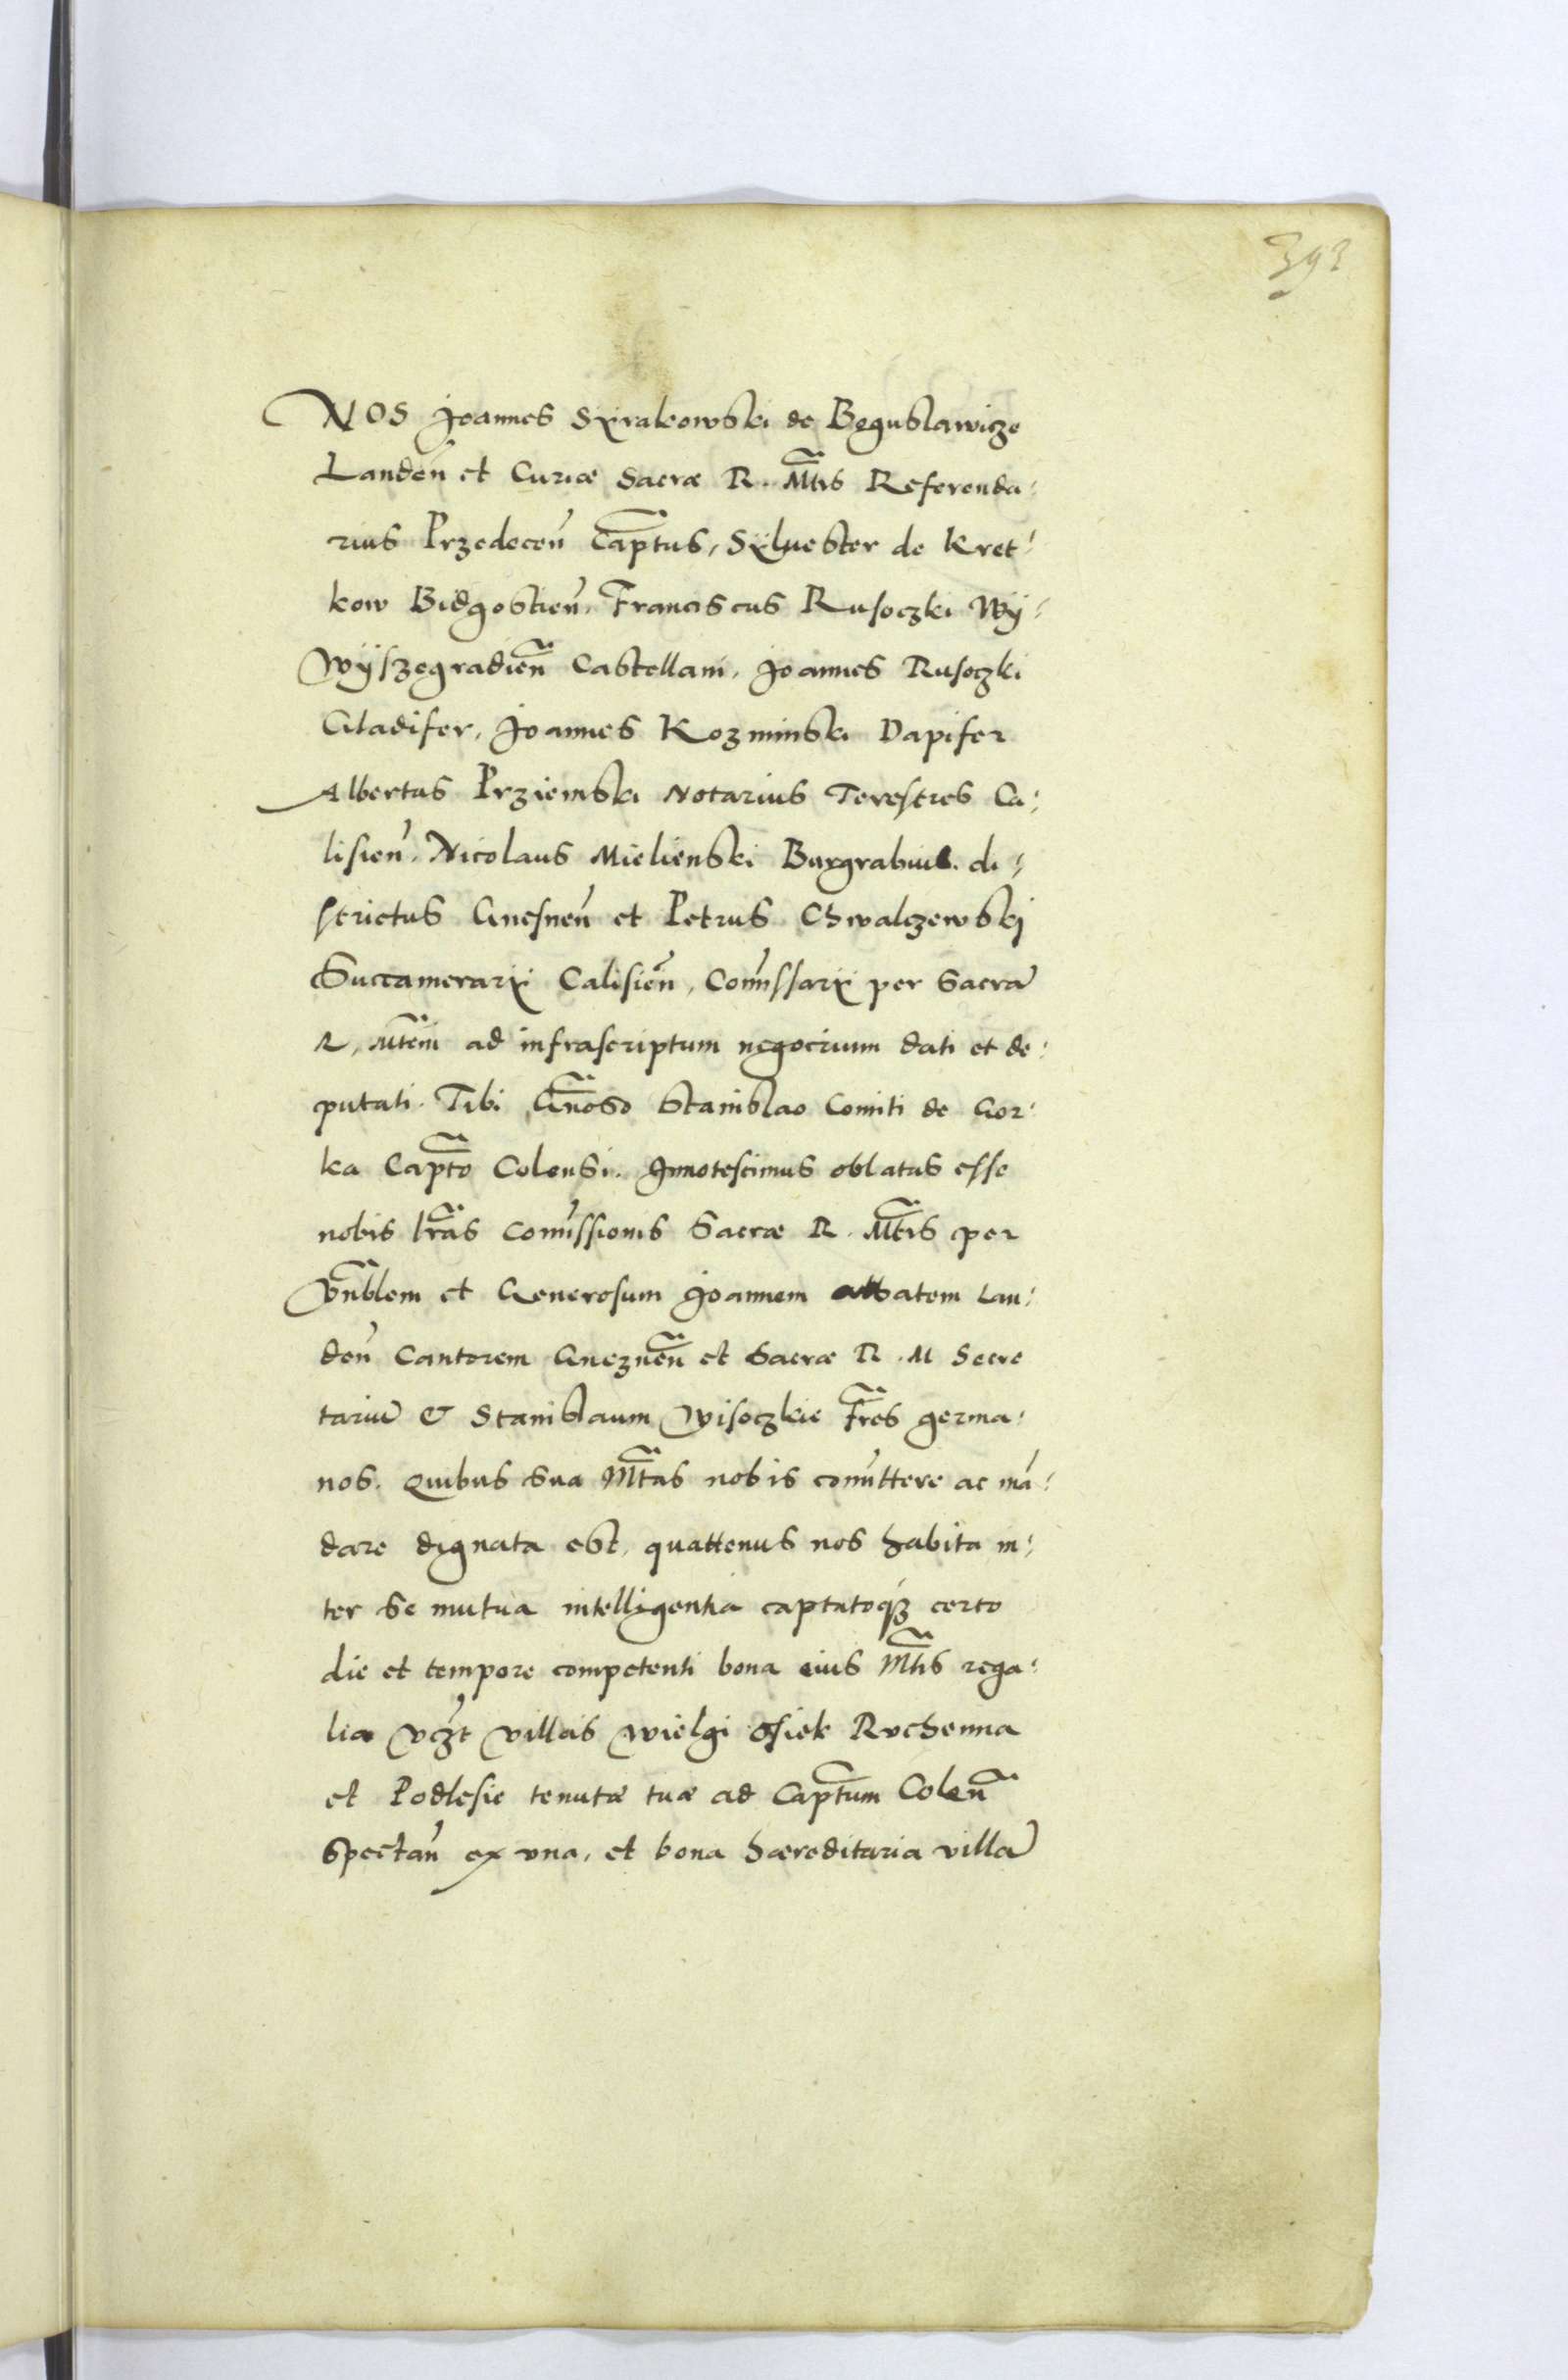 393
NOS Joannes Syrakowski de Boguslawicze
Landeñ et Curiæ Sacræ R. Mt̃is Referenda:
rius Przedeceñ Capt̃us, Sylvester de Kret:
kow Bidgostieñ. Franciscus Rusoczki Wÿ:
Wÿszegradieñ Castellani, Joannes Rusoczki
Gladifer, Joannes Kozminski Dapifer
Albertus Przÿemski Notarius Terestres Ca:
lisieñ. Nicolaus Mielienski Burgrabius. di:
strictus Gnesneñ et Petrus Chwalczewskj
Succamerarij Calisieñ, Com̃issarij per Sacrã
R. Mt̃em ad infrascriptum negocium dati et de:
putati. Tibi Gñoso Stanislao Comiti de Gor:
ka Capt̃o Colensi. Innotescimus oblatas esse
nobis lr̃as Com̃issionis Sacræ R. Mt̃is per
Vñblem et Generosum Joannem abbatem Lan:
deñ Cantorem Gnezneñ et Sacræ R. M Secre
tariũ & Stanislaum Wisoczkie Fr̃es germa:
nos. Quibus sua Mt̃as nobis com̃ittere ac mã:
dare dignata est, quattenus nos habita in:
ter se mutua intelligentia captatoq̃ certo
die et tempore competenti bona eius Mt̃is rega:
lia vcz̃t villas Wielgi Osiek Ruchenna
et Podlesie tenutæ tuæ ad Capt̃um Coleñ
Spectañ ex una, et bona hæreditaria villã